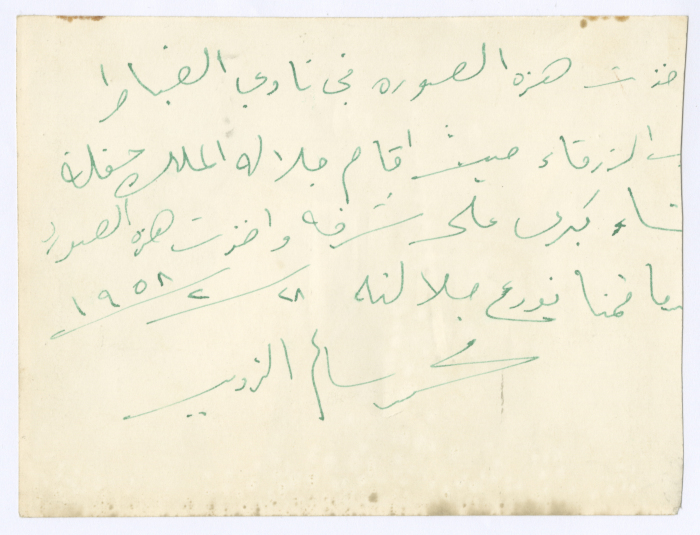 خذت هذه الصوره في نادي الضباط
ب الزرقاء حيث اقام جلالة الملك حفلة
شاء كبرى على شرفه واخذت هذه الصورة
قمنا نودع جلالته ٢٨ ٢ ١٩٥٨
محمد سالم